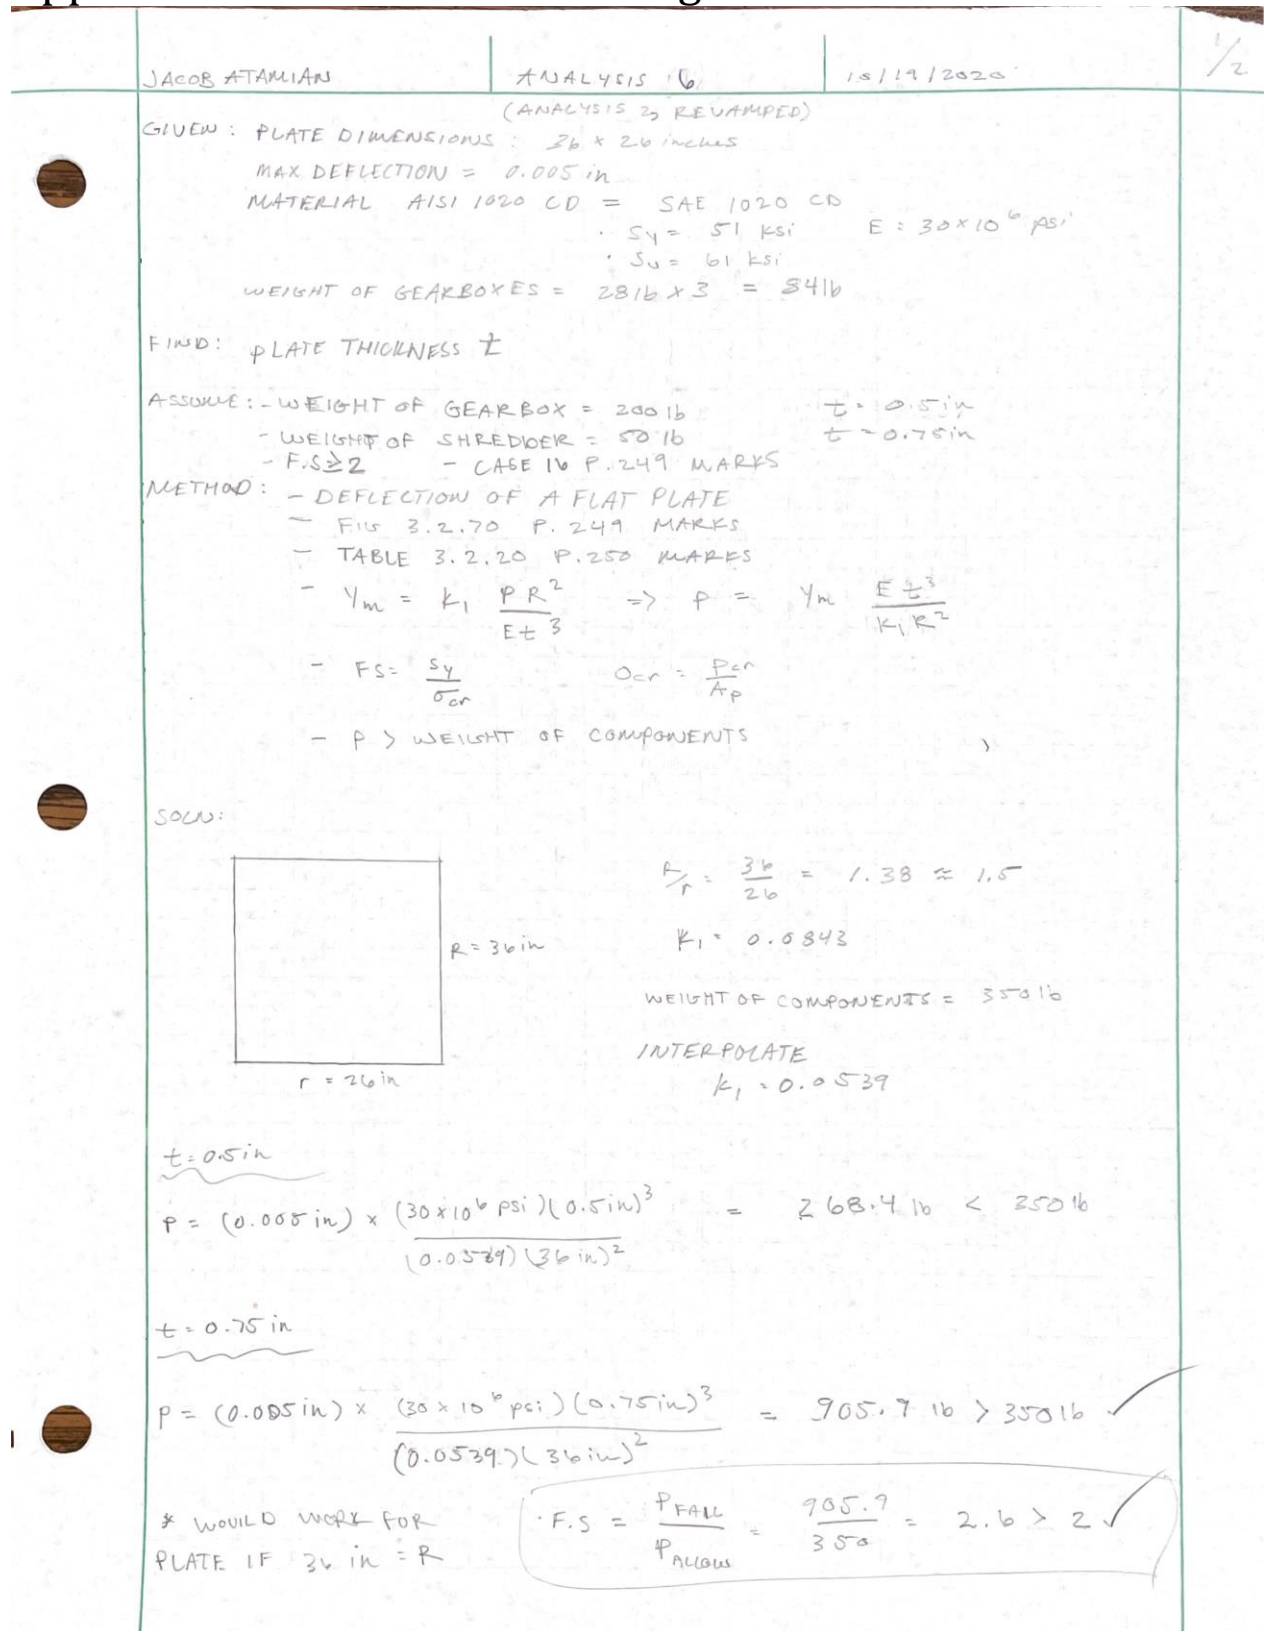 1/2
JACOB ATAMIAN ANALYSIS 6 10/19/2020
(ANALYSIS 2, REVAMPED)
GIVEN: PLATE DIMENSIONS: 36 x 26 inches
MAX DEFLECTION = 0.005 in
MATERIAL AISI 1020 CD = SAE 1020 CD
· Sy = 51 ksi E = 30×10^6 psi
· Su = 61 ksi
WEIGHT OF GEARBOXES = 281b x 3 = 841b
FIND: PLATE THICKNESS t
ASSUME: - WEIGHT OF GEARBOX = 200 lb t = 0.5in
- WEIGHT OF SHREDDER = 50 lb t = 0.75in
- F.S ≥ 2 - CASE 16 P.249 MARKS
METHOD: - DEFLECTION OF A FLAT PLATE
- FIG 3.2.70 P. 249 MARKS
- TABLE 3.2.20 P.250 MARKS
- Ym = K1 PR²/Et³ => P = Ym Et³/K1R²
- FS = Sy/σcr σcr = Pcr/Ap
- P > WEIGHT OF COMPONENTS
SOLN:
R/r = 36/26 = 1.38 ≈ 1.5
R = 36in K1 = 0.0843
WEIGHT OF COMPONENTS = 350 lb
INTERPOLATE
r = 26in K1 = 0.0539
t = 0.5in
P = (0.005 in) x (30×10^6 psi)(0.5in)³/(0.0539)(36 in)² = 268.4 lb < 350 lb
t = 0.75 in
P = (0.005in) x (30×10^6 psi)(0.75in)³/(0.0539)(36in)² = 905.9 lb > 350 lb ✓
* WOULD WORK FOR · F.S = P FAIL/P ALLOW = 905.9/350 = 2.6 > 2 ✓
PLATE IF 36 in = R